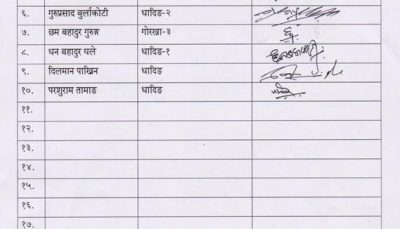 ६. गुरुप्रसाद बुर्लाकोटी धादिङ-२
७. छम बहादुर गुरुङ गोरखा-३
८. धन बहादुर घले धादिङ-१
९. दिलमान पाख्रिन धादिङ
१०. परशुराम तामाङ धादिङ
११.
१२.
१३.
१४.
१५.
१६.
१७.